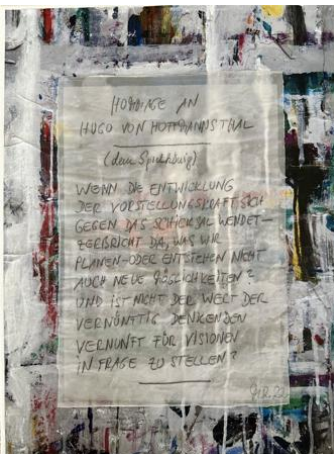 HOMMAGE AN
HUGO VON HOFMANNSTHAL
WENN DIE ENTWICKLUNG
DER VORSTELLUNGSKRAFT SICH
GEGEN DAS SCHICKSAL WENDET—
ZERBRICHT DA, WAS WIR
PLANEN-ODER ENTSTEHEN NICHT
AUCH NEUE MÖGLICHKEITEN?
UND IST NICHT DER WERT DER
VERNÜNFTIG DENKENDEN
VERNUNFT FÜR VISIONEN
IN FRAGE ZU STELLEN?